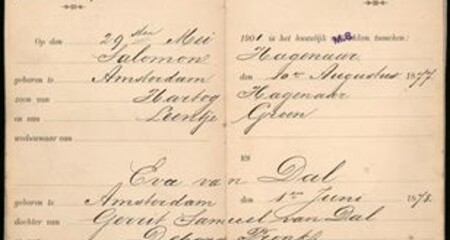 Op den 29sten Mei 1901 is het huwelijk voltrokken tusschen:
M.S.
Salomon Hagenaar
geboren te Amsterdam den 10en Augustus 1877.
zoon van Hartog Hagenaar
en van Leentje Groen
weduwnaar van
EN
Eva van Dal
geboren te Amsterdam den 1en Juni 1878.
dochter van Gerrit Samuel van Dal